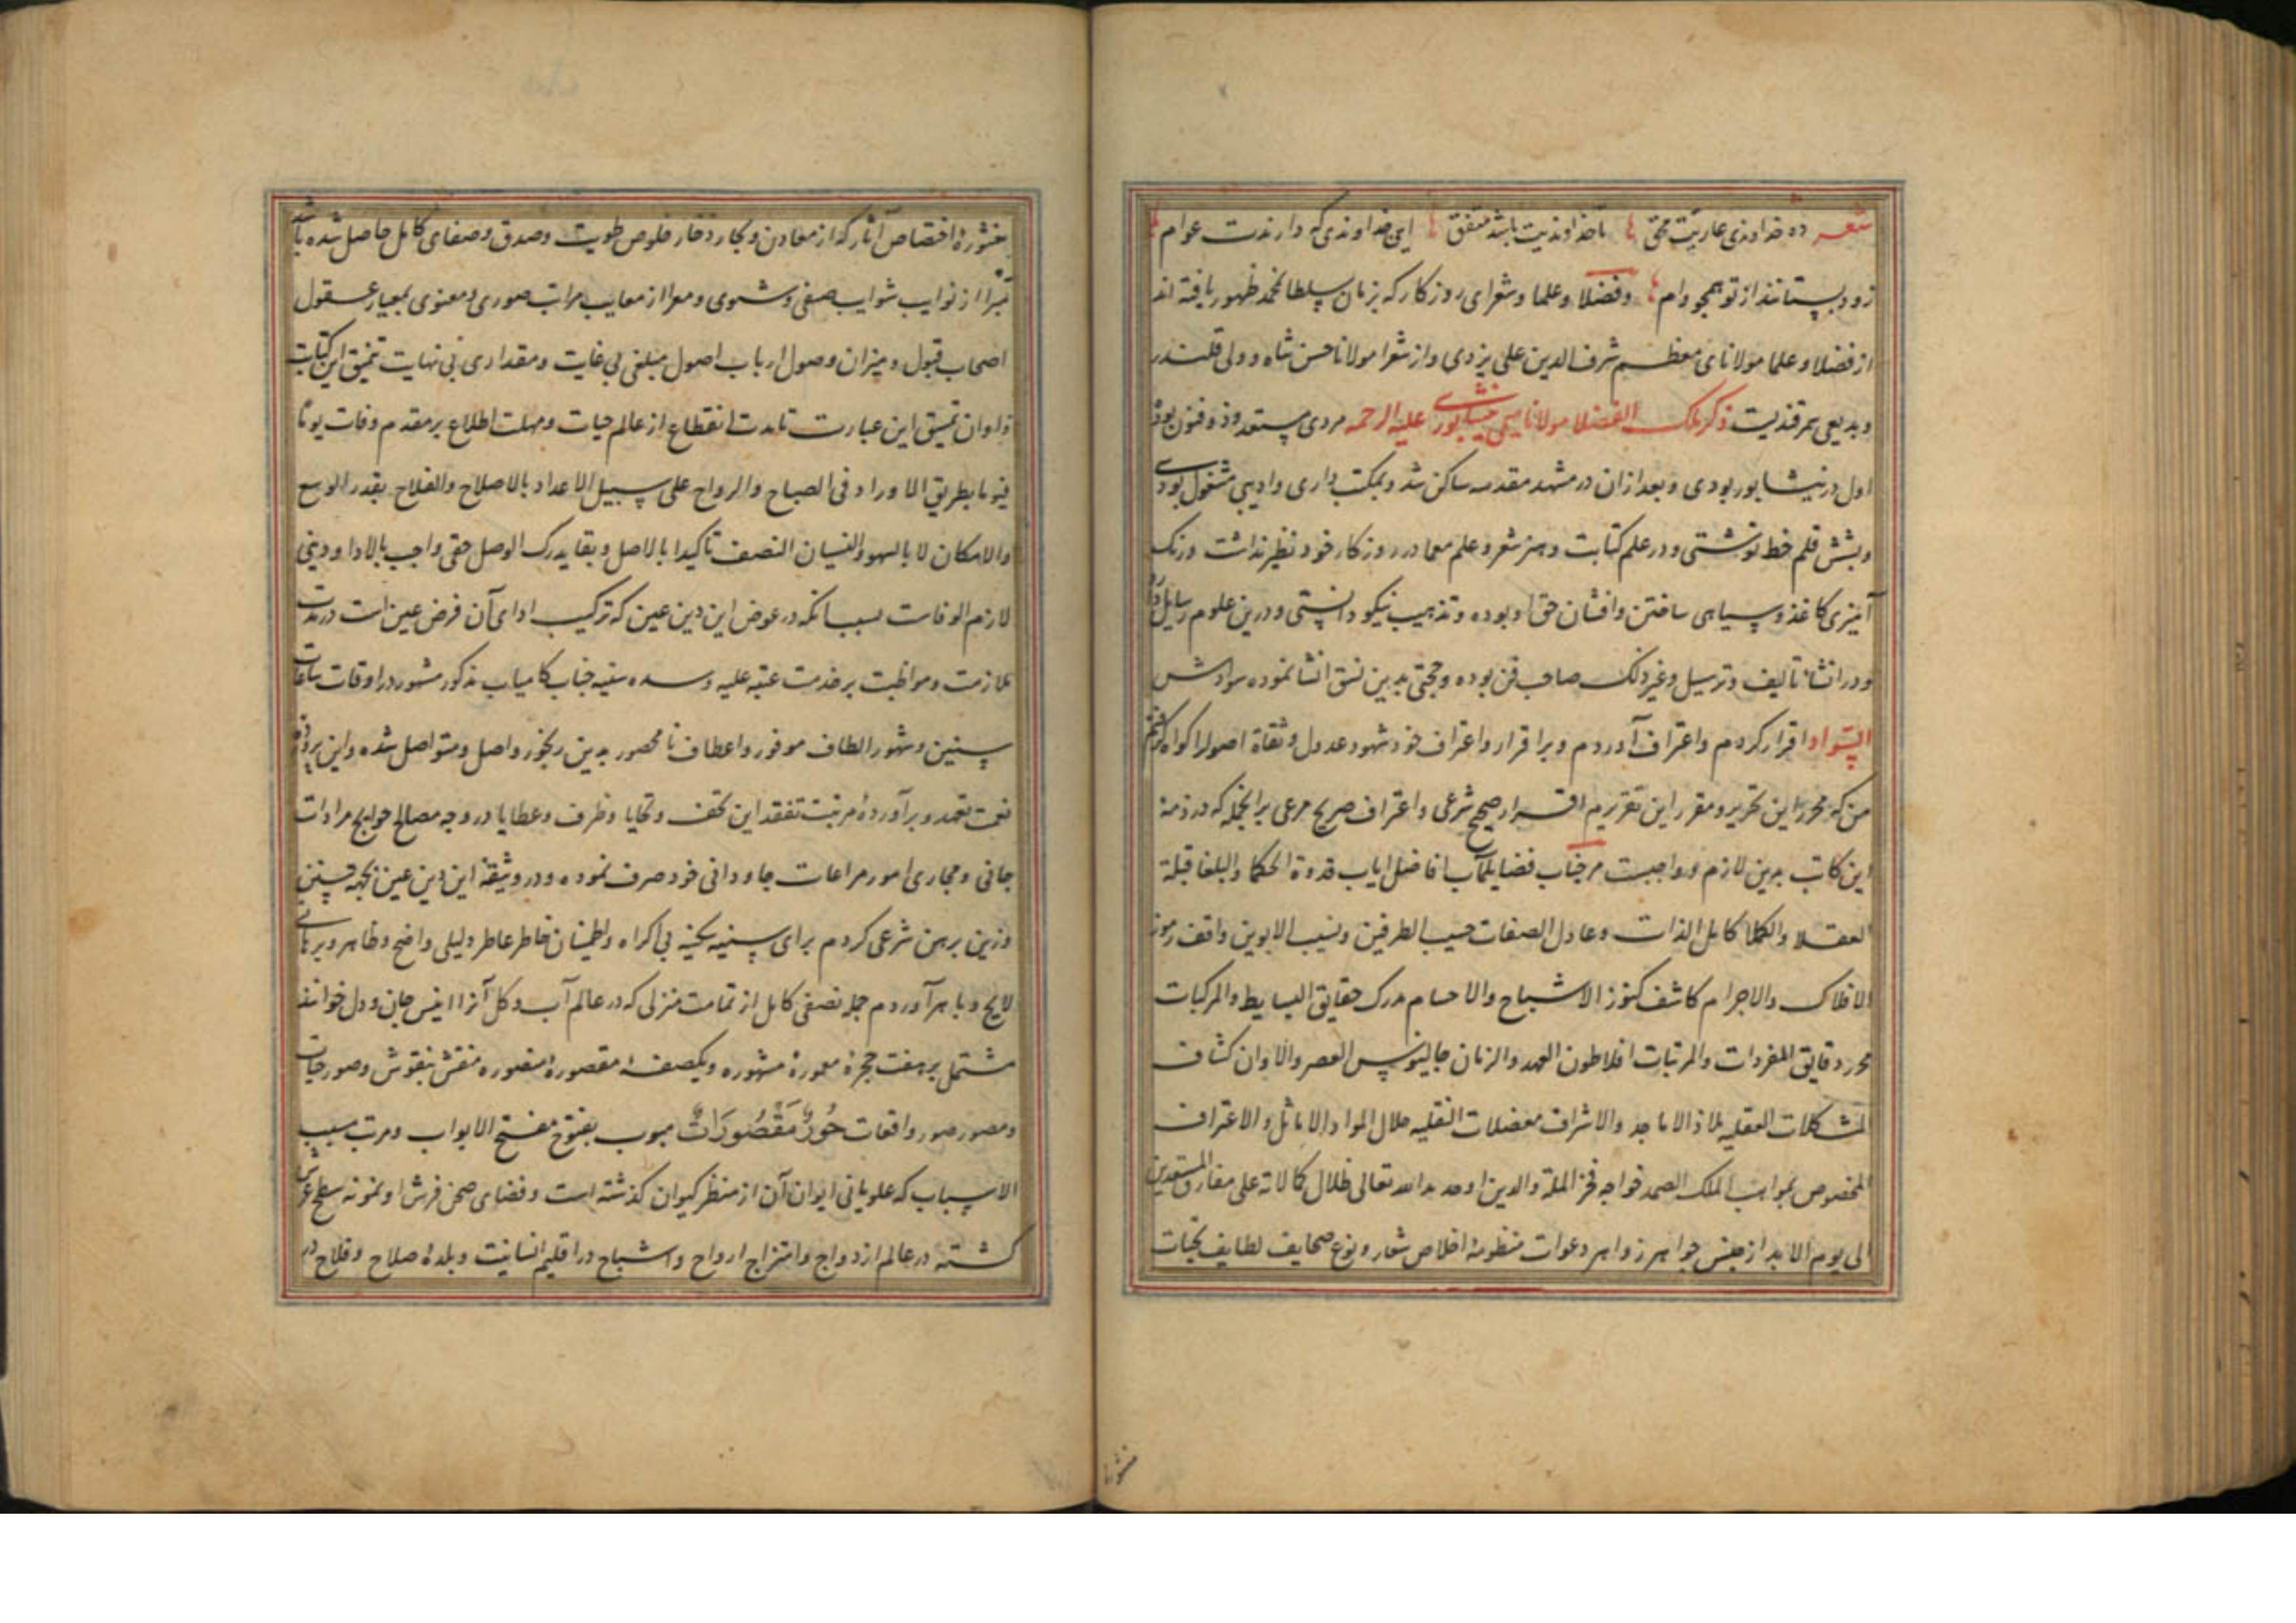 شعر ده خداوندی عاریت بحق تا خداوندیت باشد متفق این خداوندی که دارندت عوام
زود بستانند از تو همچو وام و فضلا و علما و شعرای روزکار که بزمان سلطان محمد ظهور یافته اند
از فضلا و علما مولانای معظم شرف الدین علی یزدی و از شعرا مولانا حسن شاه و ولی قلندر
و بدیعی سمرقندیست ذکر ملک الفضلا مولانا سیمی نیشابوری علیه الرحمه مردی مستعد و ذوفنون بود
اول در نیشابور بودی و بعد از آن در مشهد مقدسه ساکن شد و بمکتب داری و ادیبی مشغول بودی
و بشش قلم خط نوشتی و در علم کتابت و هنر شعر و علم معما در روزکار خود نظیر نداشت و رنک
آمیزی کاغذ و سیاهی ساختن و افشان حق او بوده و تذهیب نیکو دانستی و درین علوم رسایل دارد
و در انشا تالیف و ترسیل و غیر ذلک صاحب فن بوده و حجتی بدین نسق انشا نموده سوادش
السواد اقرار کردم و اعتراف آوردم و بر اقرار و اعتراف خود شهود عدول و ثقاة اصول را کواه کرفتم
من که محرر این تحریر و مقرر این تقریرم اقرار صحیح شرعی و اعتراف صریح مرعی برانجمله که در ذمه
این کاتب بدین لازم و واجبست مر جناب فضایلمآب افاضل ایاب قدوة الحکما و البلغا قبلة
العقلا و الکملا کامل الذات و عادل الصفات حسیب الطرفین و نسیب الابوین واقف رموز
الافلاک و الاجرام کاشف کنوز الاشباح و الاجسام مدرک حقایق البسایط و المرکبات
محرر دقایق المفردات و المرتبات افلاطون العهد و الزمان جالینوس العصر و الاوان کشاف
المشکلات العقلیه ملاذ الاماجد و الاشراف معضلات النقلیه حلال المواد الاماثل و الاعتراف
المخصوص بمواهب الملک الصمد خواجه فخر الملة و الدین اوحد مد الله تعالی ظلال کمالاته علی مفارق المستعدین
الی یوم الابد از جنس جواهر زواهر دعوات منظومهٔ اخلاص شعار و نوع صحایف لطایف تحیات
منثورهٔ اختصاص آثار که از معادن و بحار ذخار خلوص طویت و صدق و صفای کامل حاصل شده باشد
مبرا از نوایب شوایب صفی و شوی و معرا از معایب مراتب صوری و معنوی بمعیار عقول
اصحاب قبول و میزان وصول ارباب اصول مبلغی بی غایت و مقداری بی نهایت تنمیق این کتابت
و اوان تنسیق این عبارت تا مدت انقطاع از عالم حیات و مهلت اطلاع بر مقدم وفات یوما
فیوما بطریق الاوراد فی الصباح و الرواح علی سبیل الاعداد بالاصلاح و الفلاح بقدر الوسع
والامکان لا بالسهو و النسیان النصف تاکیدا بالاصل و بقا یدرک الوصل حقی واجب بالادا و دینی
لازم الوفاست بسبب آنکه در عوض این دین عین که ترکیب ادای آن فرض عین است در مدت
ملازمت و مواظبت بر خدمت عتبه علیه و سده سنیه جناب کامیاب مذکور مشهور در اوقات ساعات
سنین و شهور الطاف موفور و اعطاف نامحصور بدین رنجور واصل و متواصل شده و این پروردهٔ
نعمت تعهد و برآوردهٔ مرتبت تفقد این تحف و تحایا و ظرف و عطایا در وجه مصالح حوایج مرادات
جانی و مجاری امور مراعات جاودانی خود صرف نموده و در وثیقهٔ این دین عین بجهه چنین
وزین برهن شرعی کردم برای سنیه بحینه بی اکراه و اطمینان خاطر عاطر دلیلی واضح و ظاهر و برهانی
لایح و باهر آوردم جمله نصفی کامل از تمامت منزلی که در عالم آب و کل آنرا انیس جان و دل خوانند
مشتمل بر هفت حجرهٔ معمورهٔ مشهوره و یکصفهٔ مقصورهٔ منقش بنقوش و صور حیات
و مصور صور واقعات حُورٌ مَقْصُورَاتٌ مبوب بفتوح مفتح الابواب و مرتب مسبب
الاسباب که علو بانی ایوان آن از منظر کیوان کذشته است و فضای صحن فرش او نمونه سطح عرش
کشته در عالم ازدواج و امتزاج ارواح و اشباح در اقلیم انسانیت و بلدهٔ صلاح و فلاح در